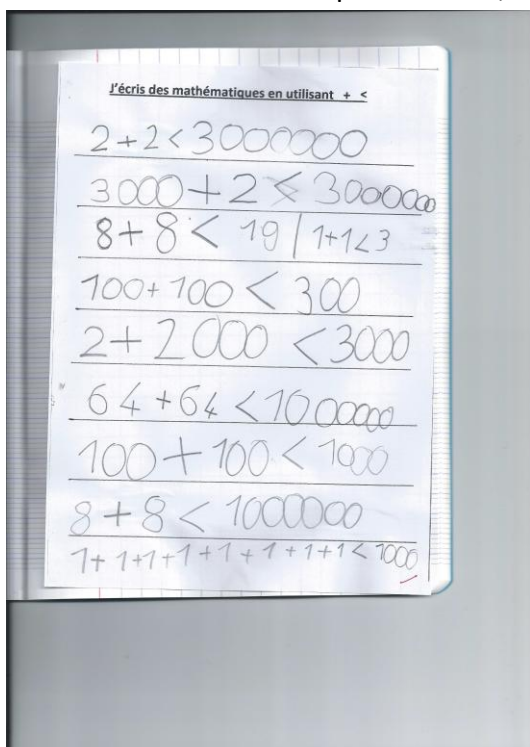 J'écris des mathématiques en utilisant + <
2+2<3000000
3000+2<3000000
8+8<19 | 1+1<3
100+100<300
2+2000<3000
64+64<1000000
100+100<1000
8+8<1000000
1+1+1+1+1+1+1+1<1000